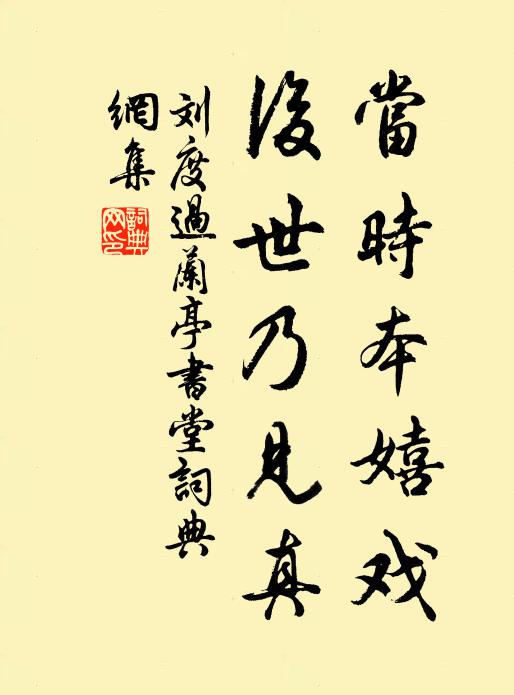 當時本嬉戏
後世乃見真
刘度過蘭亭書堂詞典
網集
詞典
网印